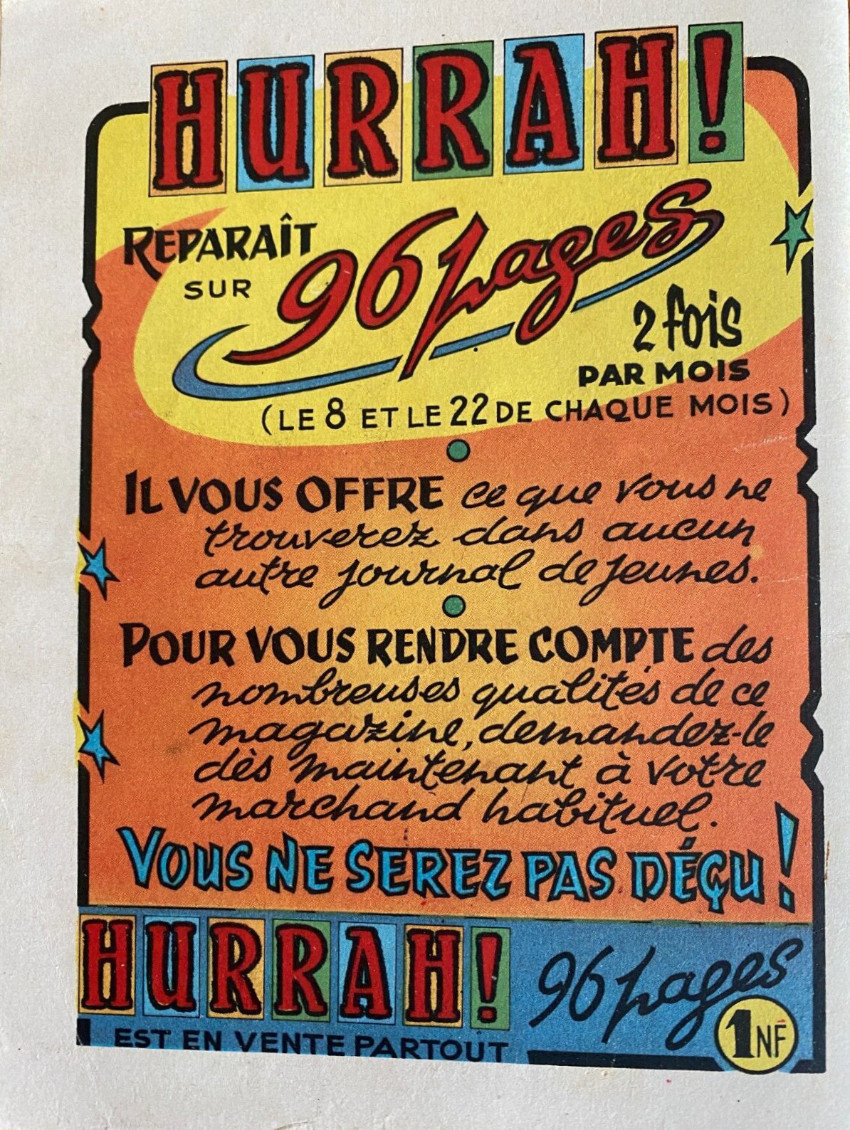 HURRAH!
REPARAÎT
SUR 96 pages
2 fois
PAR MOIS
(LE 8 ET LE 22 DE CHAQUE MOIS)
IL VOUS OFFRE ce que vous ne
trouverez dans aucun
autre journal de jeunes.
POUR VOUS RENDRE COMPTE des
nombreuses qualités de ce
magazine, demandez-le
dès maintenant à votre
marchand habituel.
VOUS NE SEREZ PAS DÉÇU!
HURRAH! 96 pages
EST EN VENTE PARTOUT
1NF